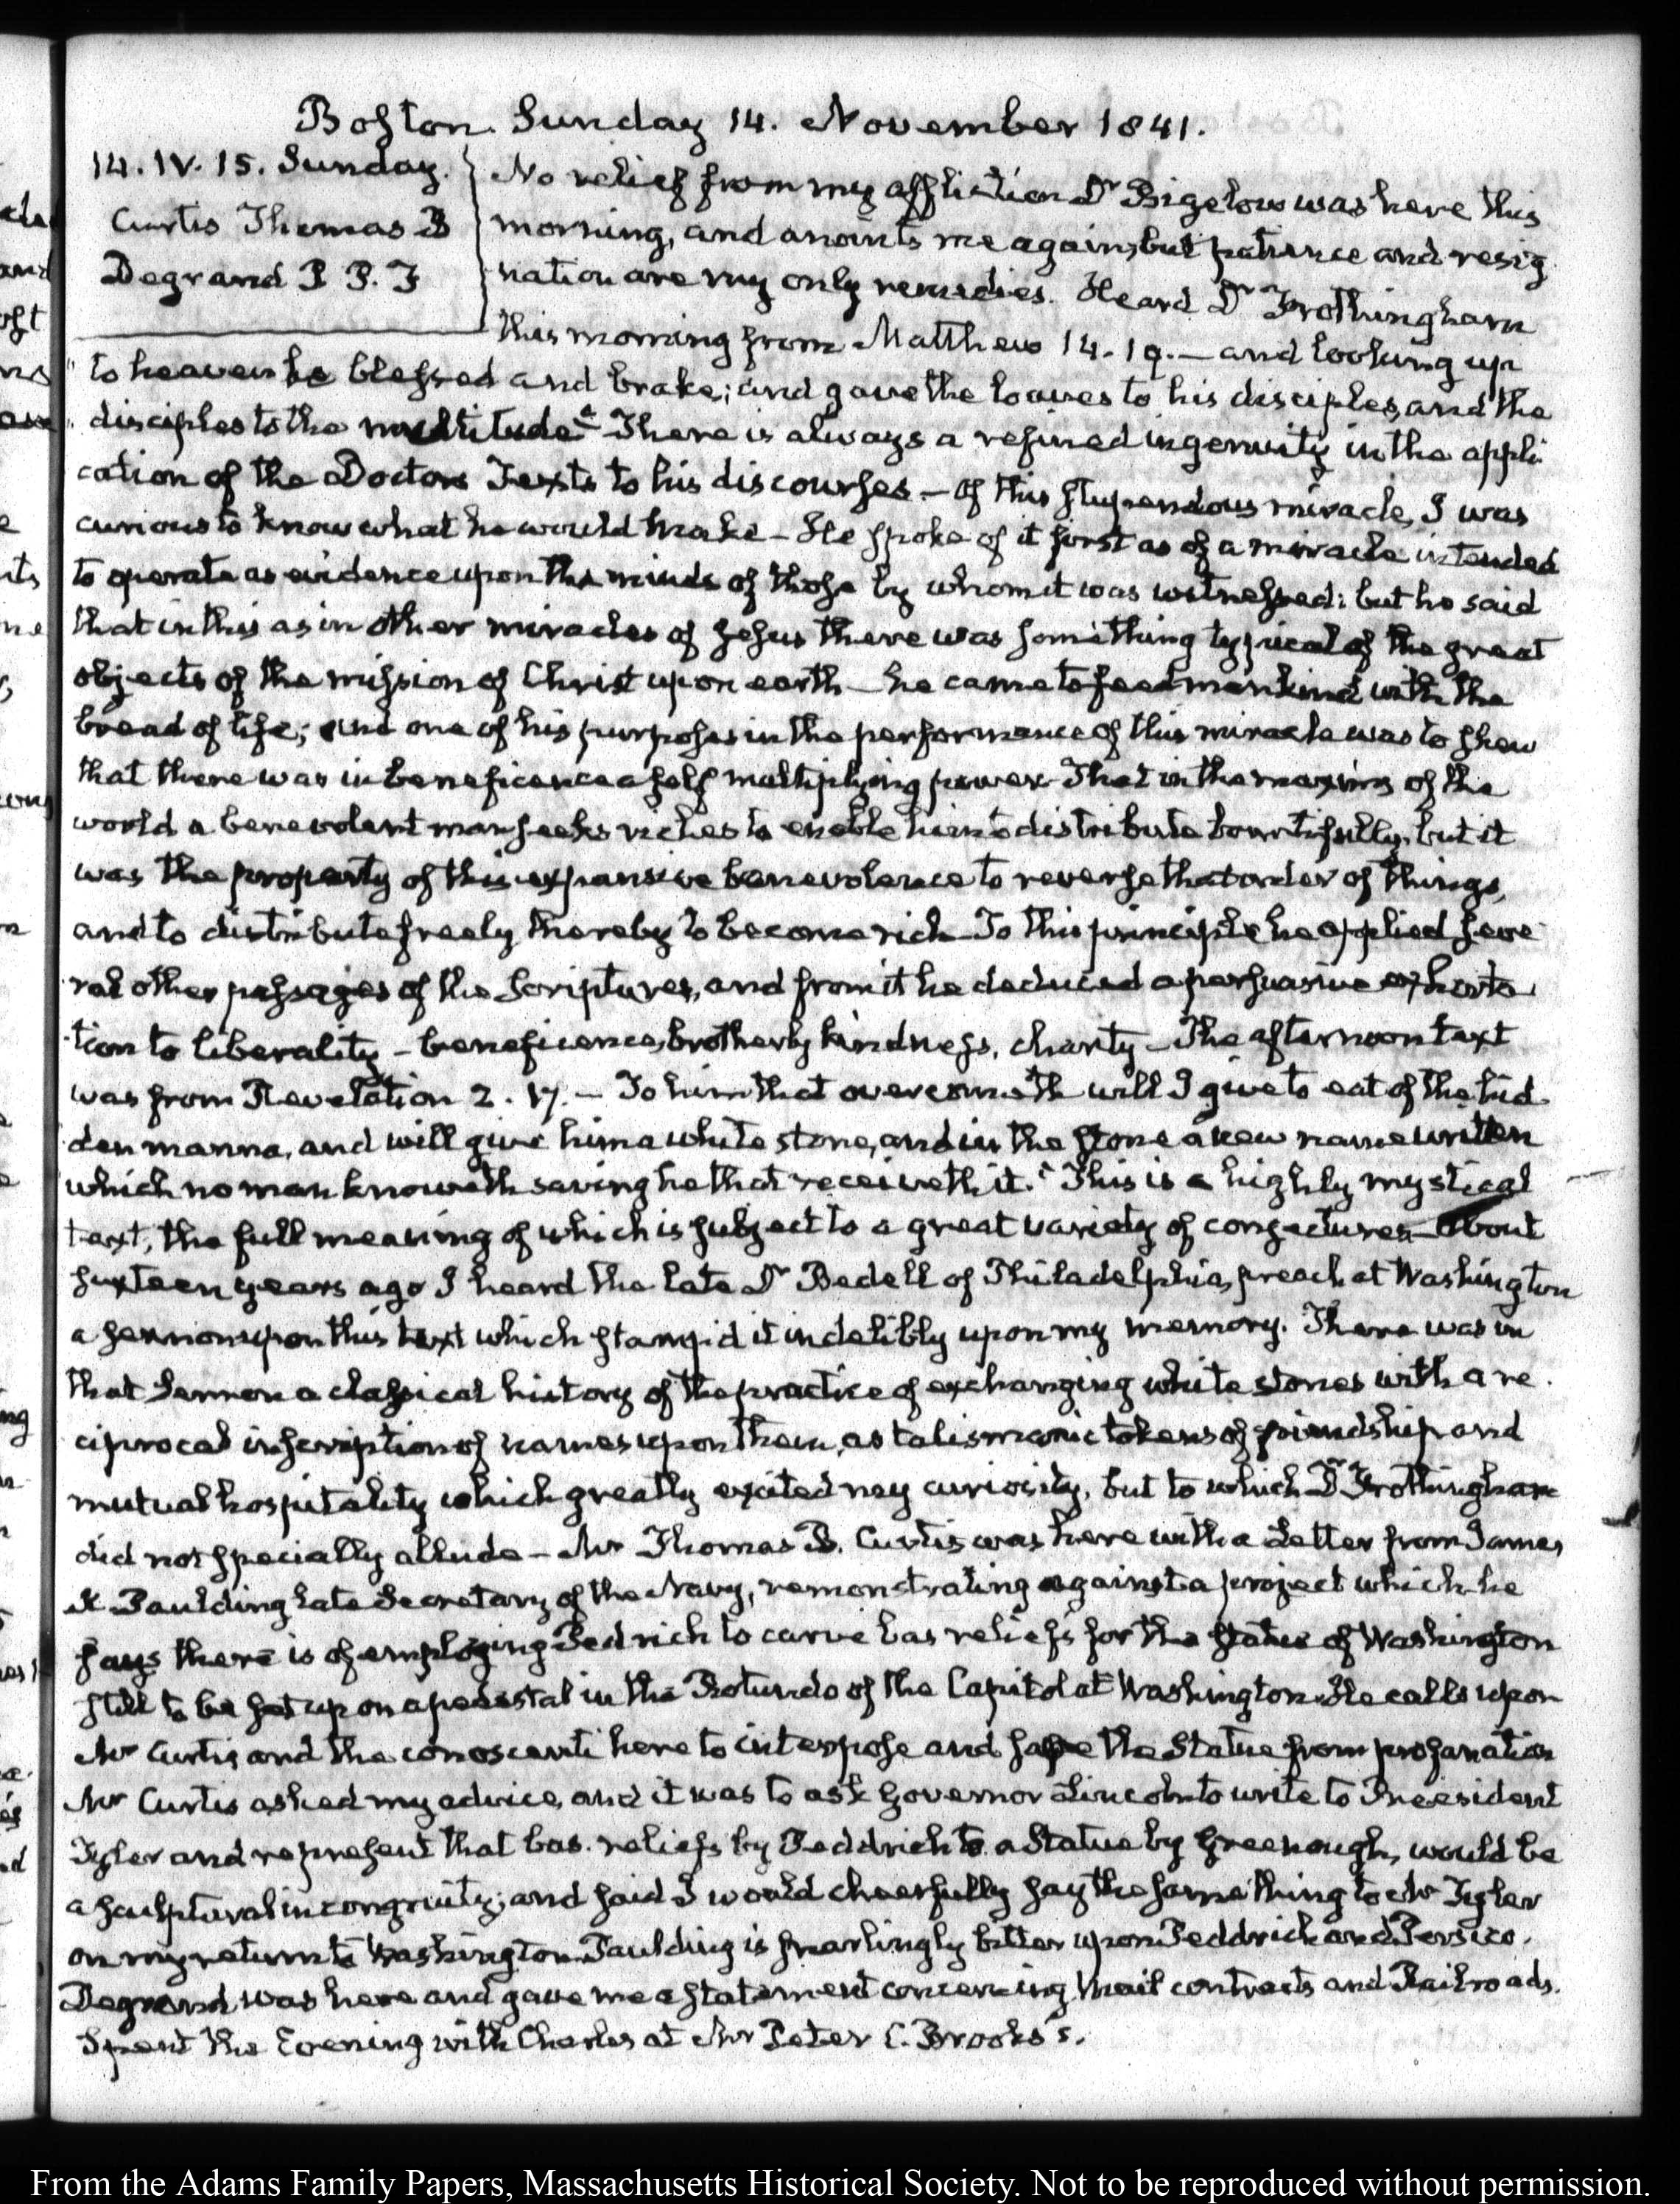 Boston. Sunday 14. November 1841.
14. IV. 15. Sunday.
Curtis Thomas B
Degrand P. P. F
No relief from my affliction Dr Bigelow was here this
morning, and anoints me again, but patience and resig
nation are my only remedies. Heard Dr Frothingham
this morning from Matthew 14. 19. — and looking up
"to heaven he blessed and brake; and gave the loaves to his disciples, and the
"disciples to the multitude" There is always a refined ingenuity in the appli
cation of the Doctors Texts to his discourses — Of this stupendous miracle, I was
curious to know what he would make — He spoke of it first as of a miracle intended
to operate as evidence upon the minds of those by whom it was witnessed: but he said
that in this as in other miracles of Jesus there was something typical of the great
objects of the mission of Christ upon earth — he came to feed mankind with the
bread of life; and one of his purposes in the performance of this miracle was to shew
that there was in beneficence a self multiplying power That in the maxims of the
world a benevolent man seeks riches to enable him to distribute bountifully, but it
was the property of this expansive benevolence to reverse that order of things,
and to distribute freely thereby to become rich — To this principle he applied seve
ral other passages of the Scriptures, and from it he deduced a persuasive exhorta
tion to liberality — beneficence, brotherly kindness, charity — The afternoon text
was from Revelation 2. 17. — To him that overcometh will I give to eat of the hid
den manna, and will give him a white stone, and in the stone a new name written
which no man knoweth saving he that receiveth it." This is a highly mystical
text, the full meaning of which is subject to a great variety of conjectures — About
sixteen years ago I heard the late Dr Bedell of Philadelphia, preach at Washington
a sermon upon this text which stamp'd it indelibly upon my memory. There was in
that Sermon a classical history of the practice of exchanging white stones with a re
ciprocal inscription of names upon them, as talismanic tokens of friendship and
mutual hospitality which greatly excited my curiosity, but to which Dr Frothingham
did not specially allude — Mr Thomas B. Curtis was here with a Letter from James
K Paulding late Secretary of the Navy, remonstrating against a project which he
says there is of employing Pedrich to carve bas reliefs for the statue of Washington
still to be set up on a pedestal in the Rotundo of the Capitol at Washington. He calls upon
Mr Curtis and the conoscenti here to interpose and save the Statue from profanation
Mr Curtis asked my advice, and it was to ask Governor Lincoln to write to President
Tyler and represent that bas-reliefs by Peddrich to a Statue by Greenough, would be
a sculptural incongruity; and said I would cheerfully say the same thing to Mr Tyler
on my return to Washington. Paulding is snarlingly bitter upon Peddrich and Persico.
Degrand was here and gave me a statement concerning Mail contracts and Railroads.
Spent the Evening with Charles at Mr Peter C. Brooks's.
From the Adams Family Papers, Massachusetts Historical Society. Not to be reproduced without permission.